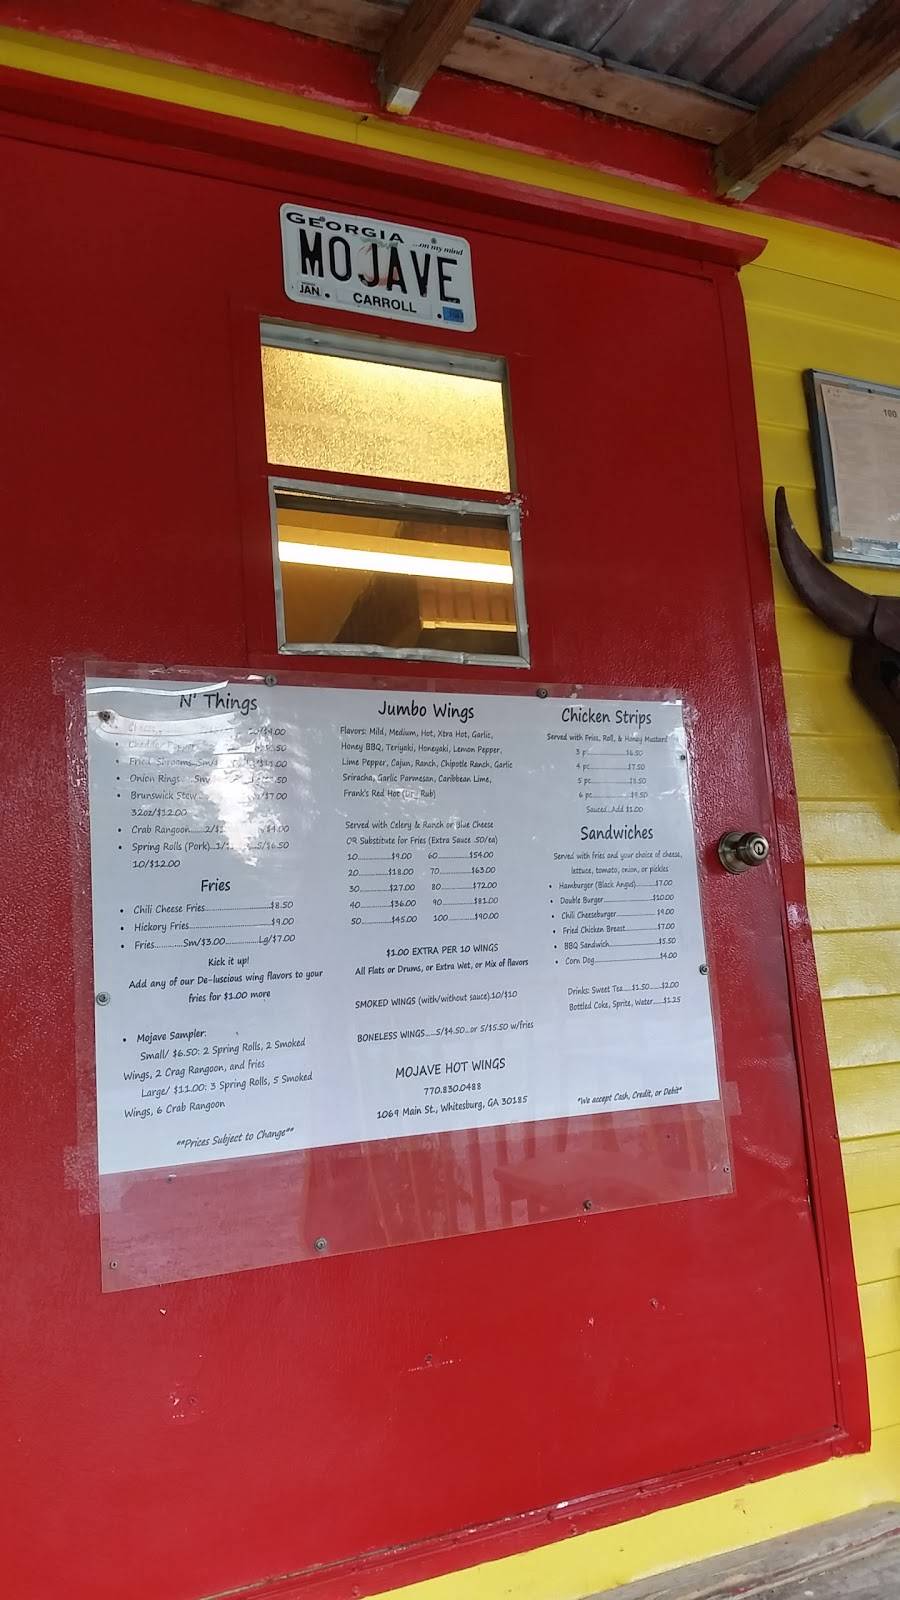 GEORGIA
...on my mind
MOJAVE
JAN
CARROLL
100
N' Things
Fried
Onion Rings
Brunswick Stew
/$7.00
32oz/$12.00
Crab Rangoon
$4.00
Spring Rolls (Pork)
5/$6.50
10/$12.00
Fries
Chili Cheese Fries $8.50
Hickory Fries $9.00
Fries Sm/$3.00 Lg/$7.00
Kick it up!
Add any of our De-luscious wing flavors to your
fries for $1.00 more
Mojave Sampler:
Small/ $6.50: 2 Spring Rolls, 2 Smoked
Wings, 2 Crag Rangoon, and fries
Large/ $11.00: 3 Spring Rolls, 5 Smoked
Wings, 6 Crab Rangoon
**Prices Subject to Change**
Jumbo Wings
Flavors: Mild, Medium, Hot, Xtra Hot, Garlic,
Honey BBQ, Teriyaki, Honeyaki, Lemon Pepper,
Lime Pepper, Cajun, Ranch, Chipotle Ranch, Garlic
Sriracha, Garlic Parmesan, Caribbean Lime,
Frank's Red Hot (Dry Rub)
Served with Celery & Ranch or Blue Cheese
OR Substitute for Fries (Extra Sauce .50/ea)
10 $9.00 60 $54.00
20 $18.00 70 $63.00
30 $27.00 80 $72.00
40 $36.00 90 $81.00
50 $45.00 100 $90.00
$1.00 EXTRA PER 10 WINGS
All Flats or Drums, or Extra Wet, or Mix of flavors
SMOKED WINGS (with/without sauce).10/$10
BONELESS WINGS.....5/$4.50..or 5/$5.50 w/fries
MOJAVE HOT WINGS
770.830.0488
1069 Main St., Whitesburg, GA 30185
Chicken Strips
Served with Fries, Roll, & Honey Mustard
3 pc $6.50
4 pc $7.50
5 pc $8.50
6 pc $9.50
Sauced..Add $1.00
Sandwiches
Served with fries and your choice of cheese,
lettuce, tomato, onion, or pickles
Hamburger (Black Angus) $7.00
Double Burger $10.00
Chili Cheeseburger $9.00
Fried Chicken Breast $7.00
BBQ Sandwich $5.50
Corn Dog $4.00
Drinks: Sweet Tea....$1.50......$2.00
Bottled Coke, Sprite, Water......$1.25
*We accept Cash, Credit, or Debit*